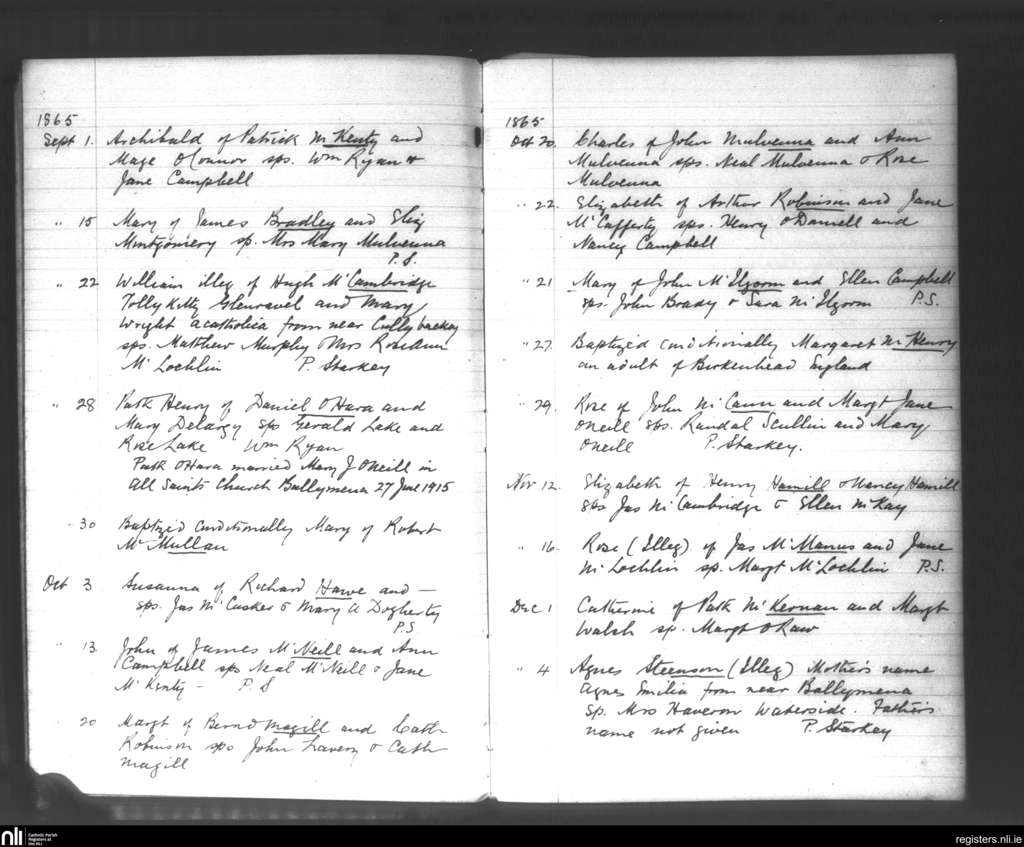 1865
Sept 1. Archibald of Patrick McKenty and
Mage OConnor sps. Wm Ryan &
Jane Campbell
" 15 Mary of James Bradley and Eliz
Montgomery sp. Mrs Mary Mulvenna
P.S.
" 22 William illeg of Hugh McCambridge
Tollykitty Glenravel and Mary
Wright acatholica from near Cullybackey
sps. Matthew Murphy & Mrs RoseAnn
McLochlin P. Starkey
" 28 Patk Henry of Daniel OHara and
Mary Delargy sps Gerald Lake and
Rose Lake Wm Ryan
Patk OHara married Mary J ONeill in
All Saints Church Ballymena 27 June 1915
" 30 Baptized conditionally Mary of Robert
McMullan
Oct 3 Susanna of Richard Hawe and —
sps. Jas McCusker & Mary A Dogherty
P.S
" 13 John of James McNeill and Ann
Campbell sps Neal McNeill & Jane
McKenty — P.S
" 20 Margt of Bernd Magill and Cath
Robinson sps John Lavery & Cath
Magill
1865
Oct 20. Charles of John Mulvenna and Ann
Mulvenna sps. Neal Mulvenna & Rose
Mulvenna
" 22. Elizabeth of Arthur Robinson and Jane
McCafferty sps. Henry ODaniell and
Nancy Campbell
" 21 Mary of John McIlgorm and Ellen Campbell
sps. John Brady & Sara McIlgorm P.S.
" 27. Baptized conditionally Margaret McHenry
an adult of Birkenhead England
" 29. Rose of John McCann and Margt Jane
ONeill sps. Randal Scullin and Mary
ONeill P. Starkey.
Nov 12. Elizabeth of Henry Hamill & Nancy Hamill
sps Jas McCambridge & Ellen McKay
" 16. Rose (Illeg) of Jas McManus and Jane
McLochlin sp. Margt McLochlin P.S.
Dec 1 Catherine of Patk McKernan and Margt
Walsh sp. Margt ORaw
" 4 Agnes Steenson (Illeg) Mother's name
Agnes Emilia from near Ballymena
Sp. Mrs Haveron Waterside. Father's
name not given P. Starkey
nli Catholic Parish Registers at the NLI
registers.nli.ie